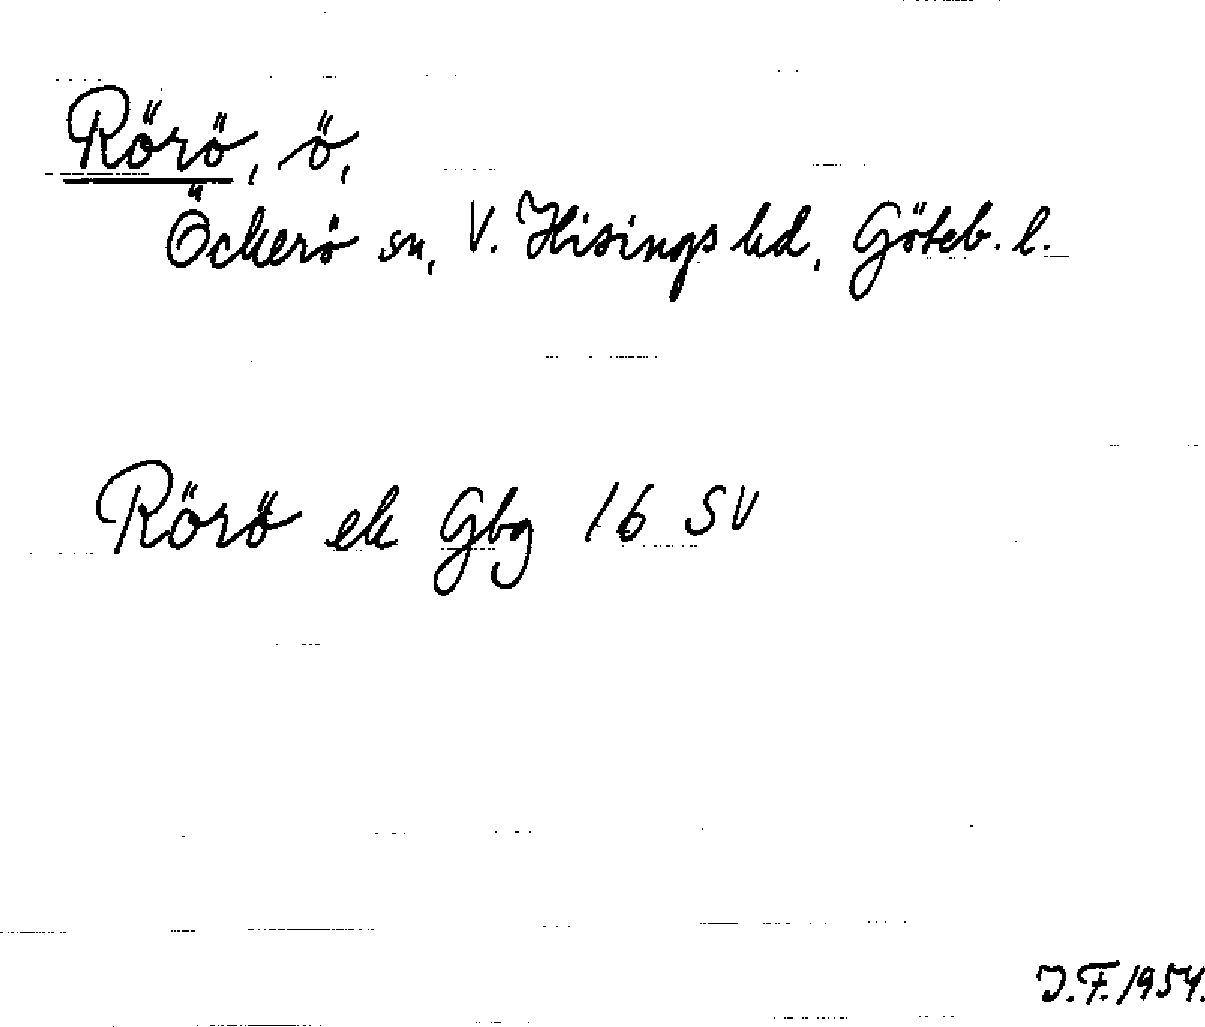 Rörö, ö,
Öckerö sn, V. Hisings hd, Göteb. l.
Rörö ek Gbg 16 SV
I.F. 1954.